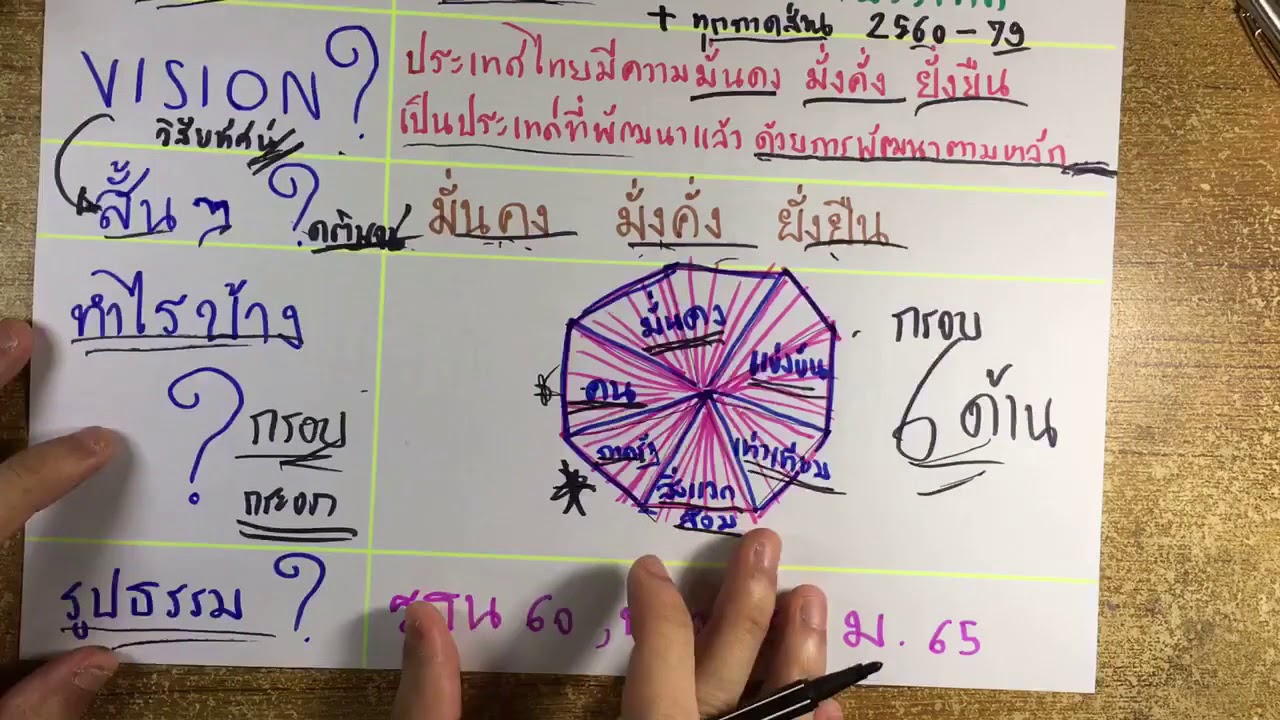 + ทุกภาคส่วน 2560-79
VISION ?
วิสัยทัศน์
ประเทศไทยมีความมั่นคง มั่งคั่ง ยั่งยืน
เป็นประเทศที่พัฒนาแล้ว ด้วยการพัฒนาตามหลัก
สั้น ๆ ?
มั่นคง มั่งคั่ง ยั่งยืน
ทำไรบ้าง
?
กรอบ
มั่นคง
แข่งขัน
คน
เท่าเทียม
ภาครัฐ
สิ่งแวด
ล้อม
กรอบ
6 ด้าน
รูปธรรม ?
60 ,
ม. 65